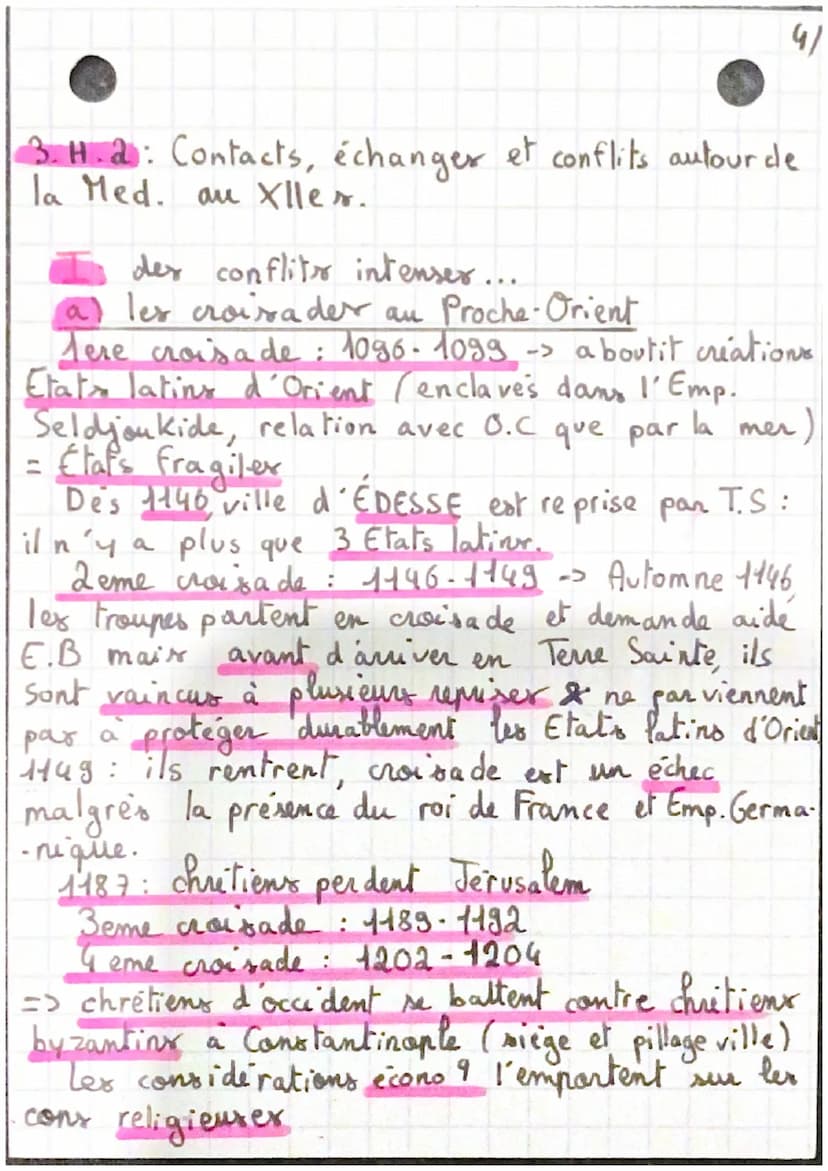 4/
3.H.2 : Contacts, échanges et conflits autour de
la Med. au XIIe s.
I des conflits intenses...
a) les croisades au Proche-Orient
1ere croisade : 1096-1099 -> aboutit créations
Etats latins d'Orient (enclavés dans l'Emp.
Seldjoukide, relation avec O.C que par la mer)
= États fragiles
Dès 1146, ville d'ÉDESSE est reprise par T.S :
il n'y a plus que 3 Etats latins.
2eme croisade : 1146-1149 -> Automne 1146,
les troupes partent en croisade et demande aide
E.B mais avant d'arriver en Terre Sainte, ils
sont vaincus à plusieurs reprises & ne parviennent
pas à protéger durablement les Etats latins d'Orient
1149 : ils rentrent, croisade est un échec
malgrès la présence du roi de France et Emp. Germa-
-nique.
1187 : chrétiens perdent Jérusalem
3eme croisade : 1189-1192
4eme croisade : 1202-1204
=> chrétiens d'occident se battent contre chrétiens
byzantins à Constantinople (siège et pillage ville)
Les considérations écono q l'emportent sur les
cons religieuses